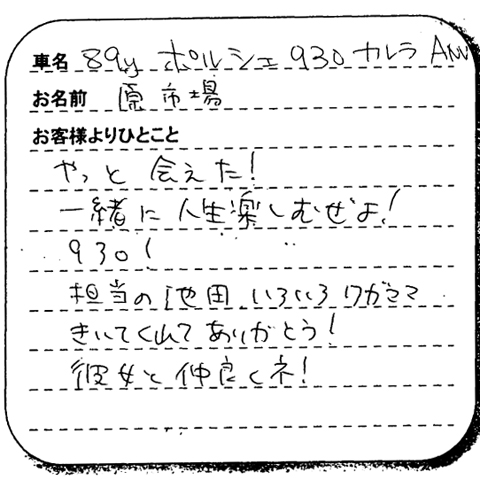 車名 89y ポルシェ930 カレラ
お名前 原市場
お客様よりひとこと
やっと 会えた!
一緒に 人生楽しむぜよ!
930!
担当の池田 いろいろワガママ
きいてくれてありがとう!
彼女と仲良くネ!